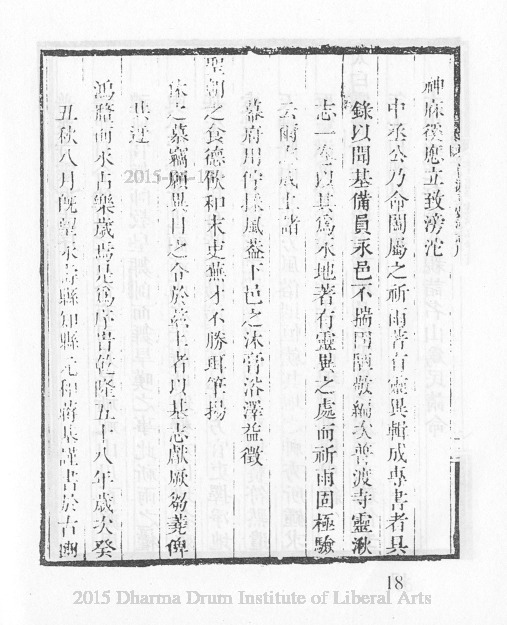 神庥徯應立致滂沱
中丞公乃命闔屬之祈雨著有靈異輯成專書者具
錄以聞基備員永邑不揣固陋敬編次善渡寺靈湫
志一卷以基爲永地著有靈異之處而祈雨固極驗
云爾 風土諸
幕府用佇採風葢下邑之沐膏浴澤益徵
聖朝之食德飲和末吏蕪才不勝珥筆揚
休之慕竊願異日之令於茲土者以基志獻厥芻蕘俾
共迓
鴻釐而永占樂歲焉是爲序時乾隆五十八年歲次癸
丑秋八月既望永壽縣知縣元和蔣基謹書於古豳
18
2015 Dharma Drum Institute of Liberal Arts